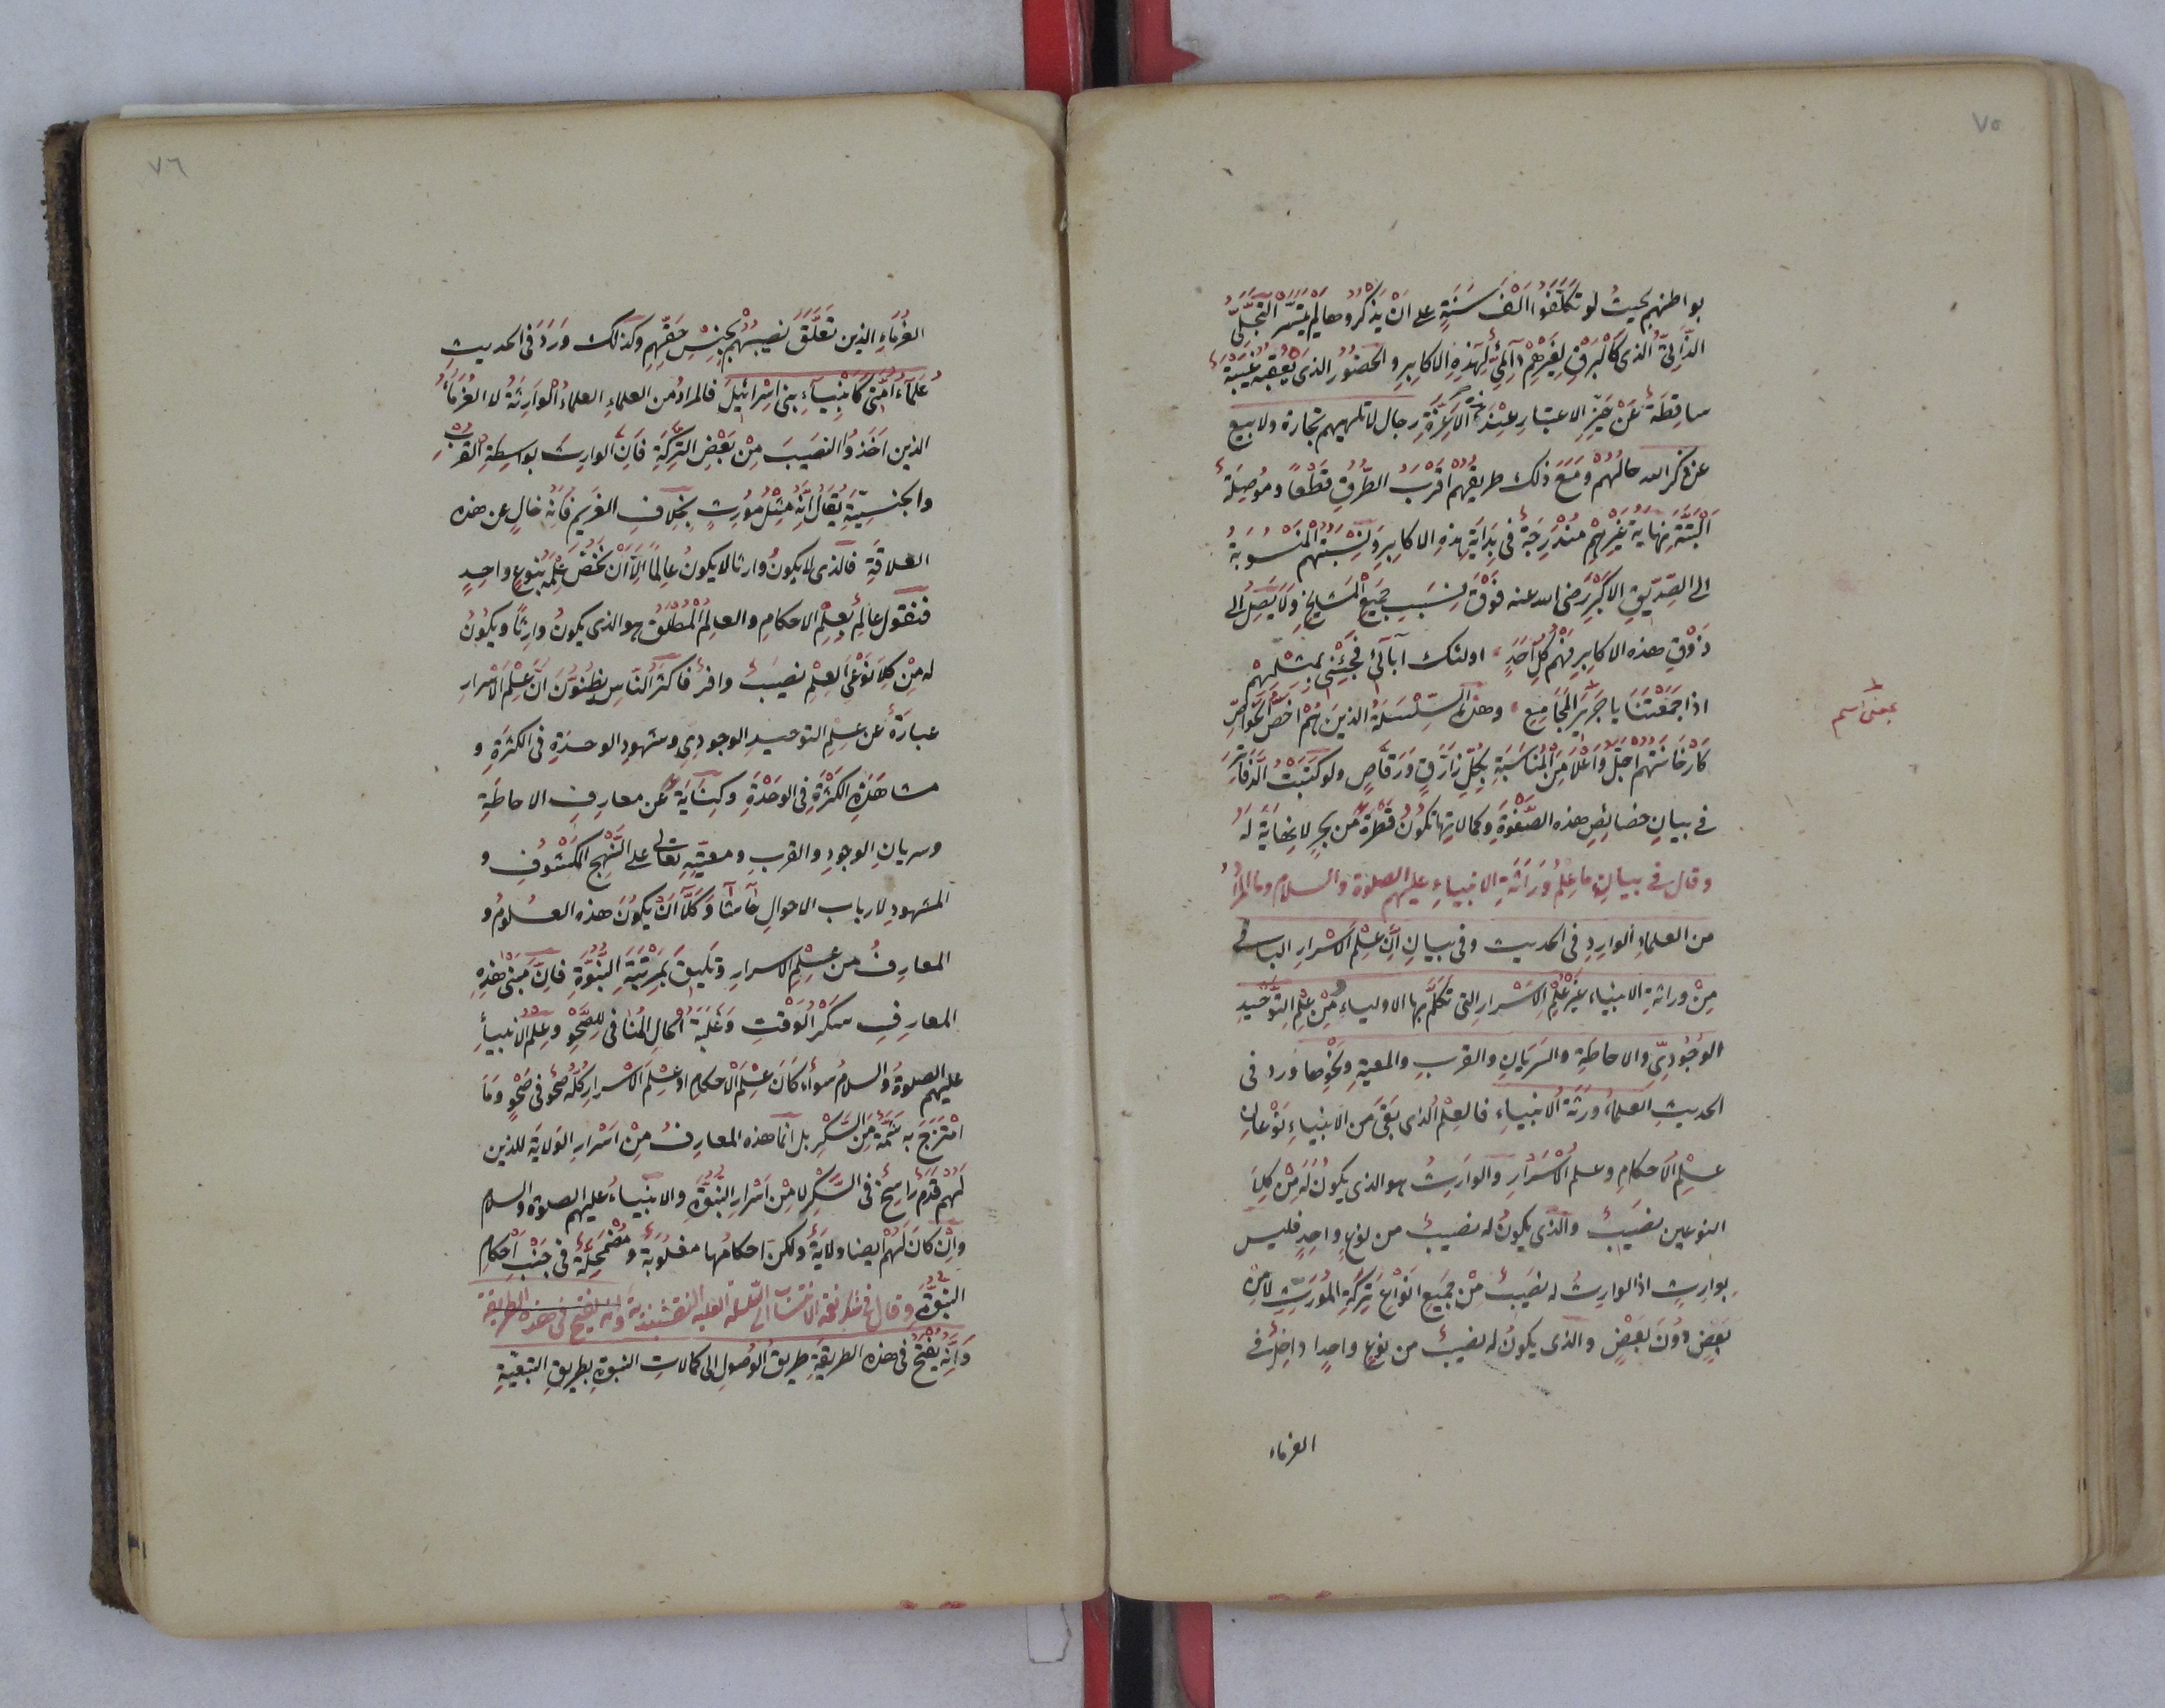 ٧٥
بواطنهم بحيث لو تكلفوا الف سنة على ان يذكروها لم يتيسر التجلى
الذاتى الذى كالبرق لغيرهم دائمى لهذه الاكابر والحضور الذى يعقبه غيبة
ساقطة عن حيز الاعتبار عند الاعزة رجال لا تلهيهم تجارة ولا بيع
عن ذكر الله حالهم ومع ذلك طريقهم اقرب الطرق قطعا وموصلة
البتة نهاية غيرهم مندرجة فى بداية هذه الاكابر ونسبتهم المنسوبة
الى الصديق الاكبر رضى الله عنه فوق نسب جميع المشايخ ولا يصل الى
ذوق هذه الاكابر فهم كل احد اولئك آبائى فجئنى بمثلهم
اذا جمعتنا يا جرير المجامع وهذه السلسلة الذين هم اخص الخواص
كارخانتهم اجل واعلا من المناسبة بكل زراق ورقاص ولو كتبت الدفاتر
فى بيان خصائص هذه الصفوة وكمالاتها تكون قطرة من بحر لا نهاية له
وقال فى بيان ما علم وراثة الانبياء عليهم الصلوة والسلام وما المراد
من العلماء الوارد فى الحديث وفى بيان ان علم الاسرار الباقى
من وراثة الانبياء غير علم الاسرار التى تكلم بها الاولياء من علم التوحيد
الوجودى والاحاطة والسريان والقرب والمعية ونحوها ورد فى
الحديث العلماء ورثة الانبياء فالعلم الذى بقى من الانبياء نوعان
علم الاحكام وعلم الاسرار والوارث هو الذى يكون له من كلا
النوعين نصيب والذى يكون له نصيب من نوع واحد فليس
بوارث اذ الوارث له نصيب من جميع انواع تركة المورث لا من
بعض دون بعض والذى يكون له نصيب من نوع واحدا داخل فى
الغرماء
بمعنى اسم
٧٦
الغرماء الذين تعلق نصيبهم بجنس حقهم وكذلك ورد فى الحديث
علماء امتى كانبياء بنى اسرائيل فالمراد من العلماء العلماء الوارثة لا الغرماء
الذين اخذوا النصيب من بعض التركة فان الوارث بواسطة القرب
والجنسية يقال انه مثل مورث بخلاف الغريم فانه خال عن هذه
العلاقة فالذى لا يكون وارثا لا يكون عالما الا ان نخص علمه بنوع واحد
فنقول عالم بعلم الاحكام والعالم المطلق هو الذى يكون وارثا ويكون
له من كلا نوعى العلم نصيب وافر فاكثر الناس يظنون ان علم الاسرار
عبارة عن علم التوحيد الوجودى وشهود الوحدة فى الكثرة و
مشاهدة الكثرة فى الوحدة وكناية عن معارف الاحاطة
وسريان الوجود والقرب ومعيته تعالى على النهج المكشوف و
المشهود لارباب الاحوال حاشا وكلا ان يكون هذه العلوم و
المعارف من علم الاسرار وتليق بمرتبة النبوة فان مبنى هذه
المعارف سكر الوقت وغلبة الحال المنافى للصحو وعلم الانبياء
عليهم الصلوة والسلام سواء كان علم الاحكام او علم الاسرار كله صحو فى صحو وما
امتزج به شمة من السكر بل انما هذه المعارف من اسرار الولاية للذين
لهم قدم راسخ فى السكر لا من اسرار النبوة والانبياء عليهم الصلوة والسلام
وان كان لهم ايضا ولاية ولكن احكامها مغلوبة ومضمحلة فى جنب احكام
النبوة وقال فى الانتساب الى السلسلة العلية النقشبندية وانه يفتح فى هذه الطريقة
وانه يفتح فى هذه الطريقة طريق الوصول الى كمالات النبوة بطريق التبعية